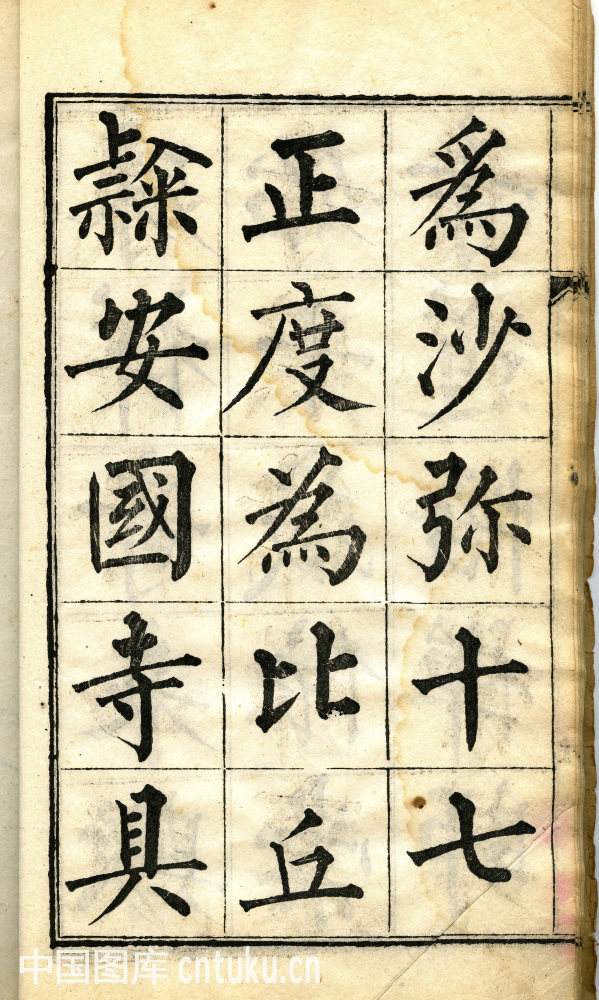 爲沙弥十七
正度為比丘
隸安國寺具
中国图库 cntuku.cn